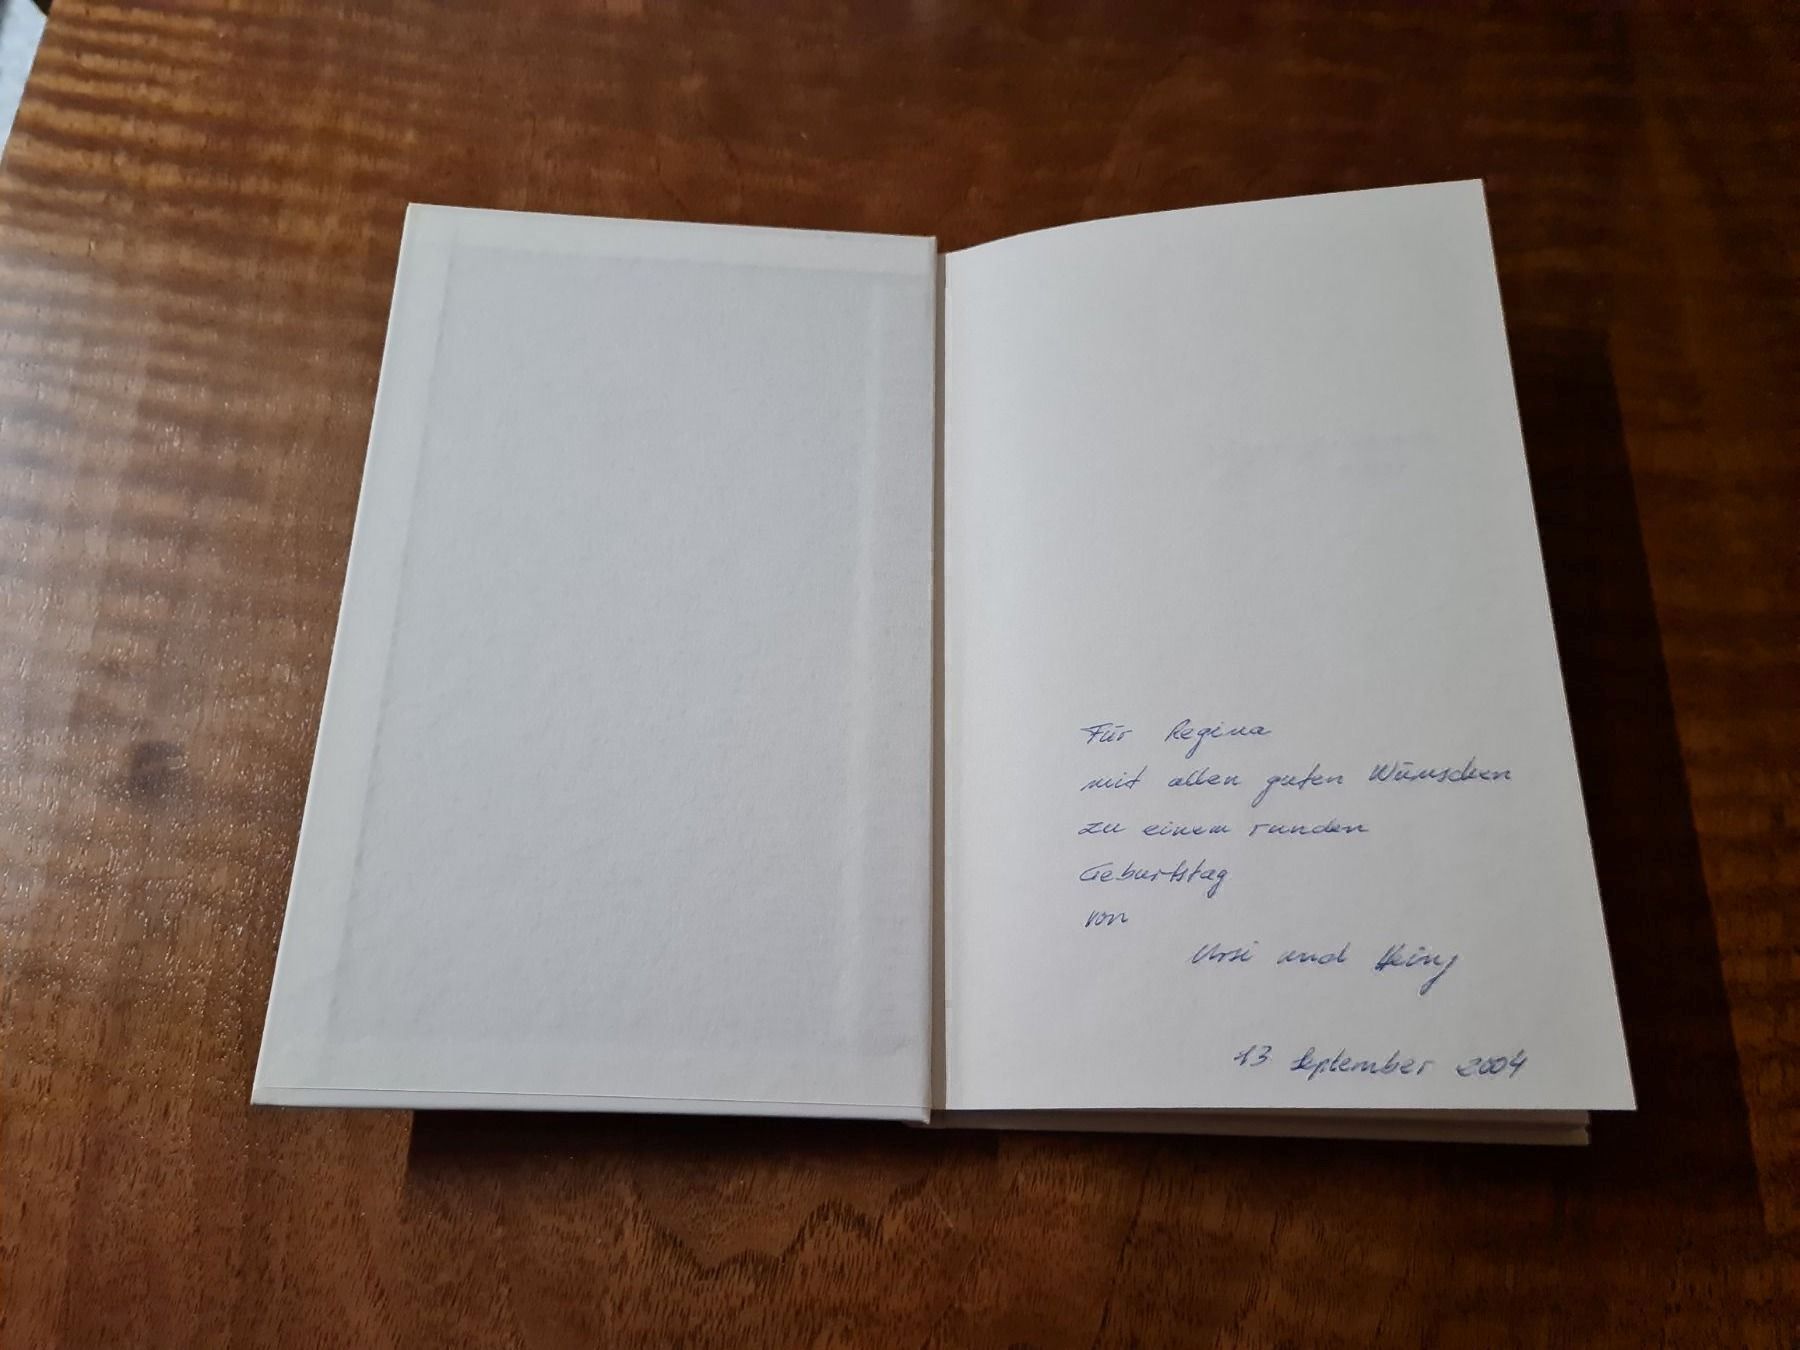 Für Regina
mit allen guten Wünschen
zu einem runden
Geburtstag
von
Ursi und Heinz
13 September 2004